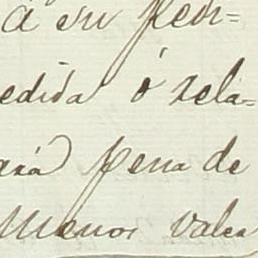 á su pedi=
edida ó rela=
ará pena de
menos valer